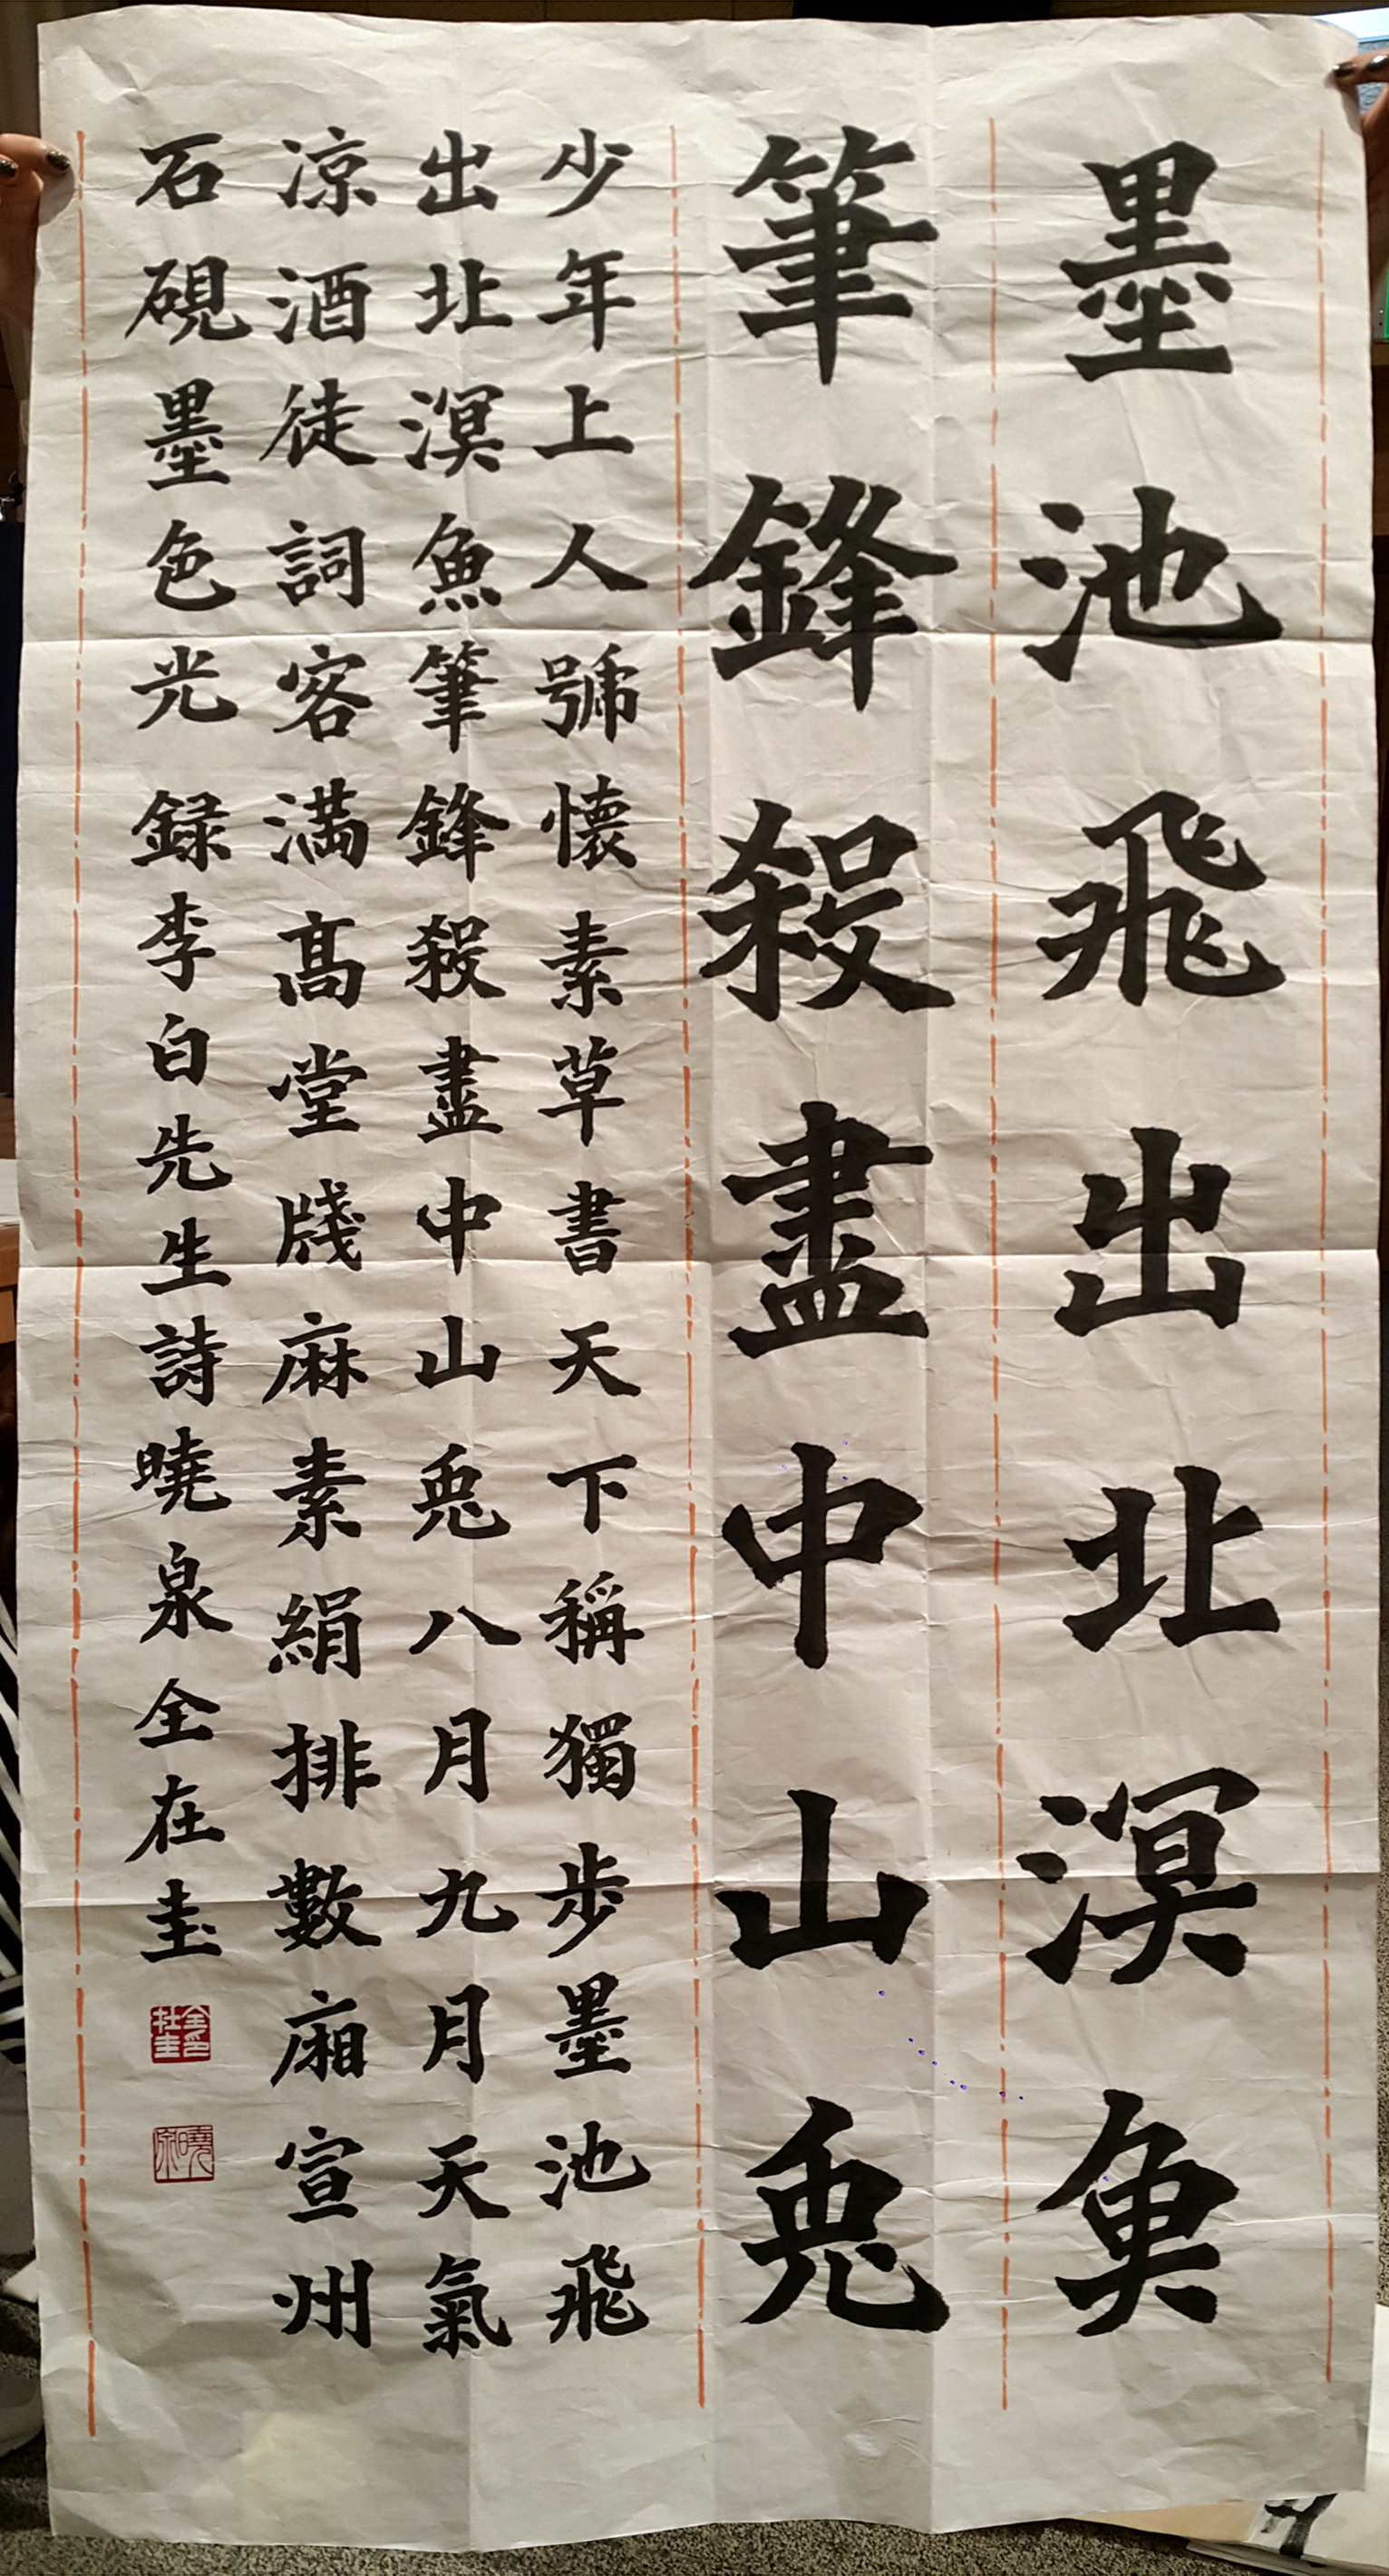 墨池飛出北溟魚
筆鋒殺盡中山兎
少年上人號懷素草書天下稱獨步墨池飛
出北溟魚筆鋒殺盡中山兎八月九月天氣
凉酒徒詞客満髙堂牋麻素絹排數廂宣州
石硯墨色光 録李白先生詩 曉泉全在圭